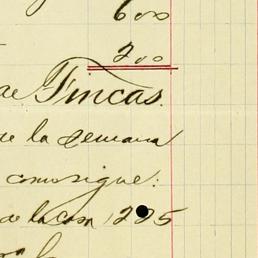 600
200
de Fincas.
de la semana
consigue:
de la casa, 1225